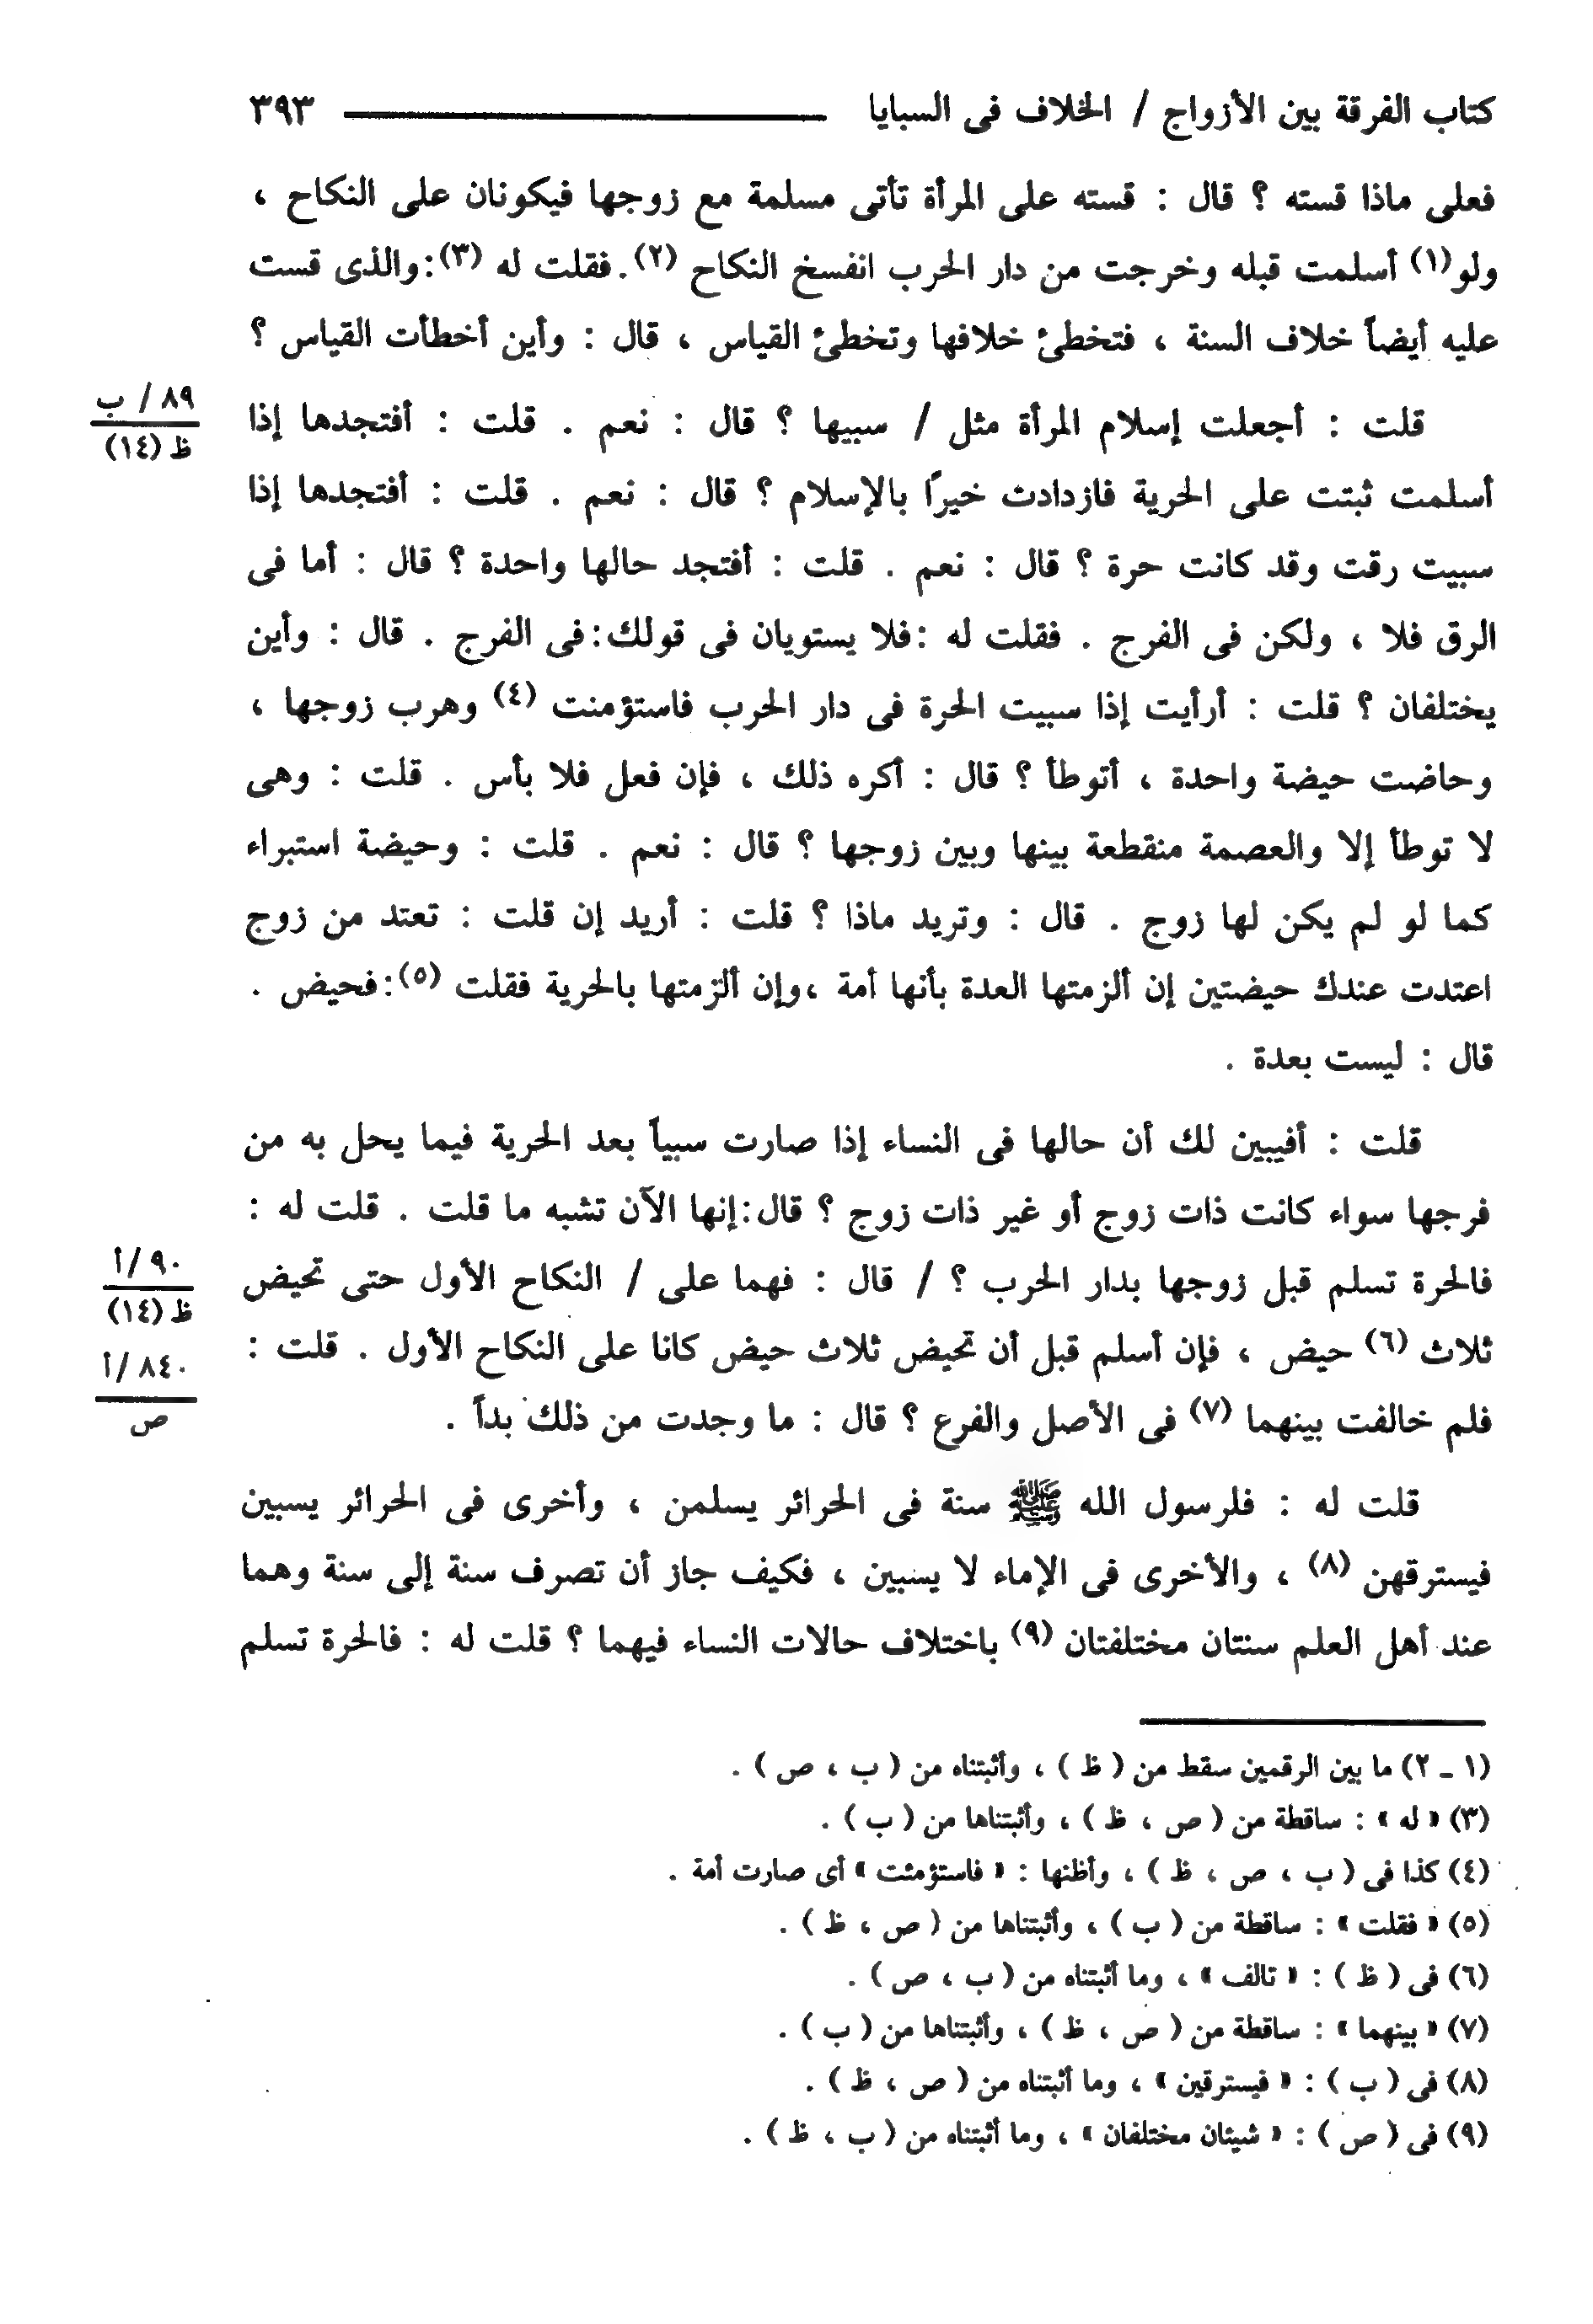 كتاب الفرقة بين الأزواج / الخلاف فى السبايا ٣٩٣
فعلى ماذا قسته ؟ قال : قسته على المرأة تأتى مسلمة مع زوجها فيكونان على النكاح ،
ولو(١) أسلمت قبله وخرجت من دار الحرب انفسخ النكاح (٢).فقلت له (٣):والذى قست
عليه أيضاً خلاف السنة ، فتخطئ خلافها وتخطئ القياس ، قال : وأين أخطأت القياس ؟
قلت : أجعلت إسلام المرأة مثل / سبيها ؟ قال : نعم . قلت : أفتجدها إذا
٨٩ / ب
ظ (١٤)
أسلمت ثبتت على الحرية فازدادت خيرًا بالإسلام ؟ قال : نعم . قلت : أفتجدها إذا
سبيت رقت وقد كانت حرة ؟ قال : نعم . قلت : أفتجد حالها واحدة ؟ قال : أما فى
الرق فلا ، ولكن فى الفرج . فقلت له :فلا يستويان فى قولك:فى الفرج . قال : وأين
يختلفان ؟ قلت : أرأيت إذا سبيت الحرة فى دار الحرب فاستؤمنت (٤) وهرب زوجها ،
وحاضت حيضة واحدة ، أتوطأ ؟ قال : أكره ذلك ، فإن فعل فلا بأس . قلت : وهى
لا توطأ إلا والعصمة منقطعة بينها وبين زوجها ؟ قال : نعم . قلت : وحيضة استبراء
كما لو لم يكن لها زوج . قال : وتريد ماذا ؟ قلت : أريد إن قلت : تعتد من زوج
اعتدت عندك حيضتين إن ألزمتها العدة بأنها أمة ،وإن ألزمتها بالحرية فقلت (٥):فحيض .
قال : ليست بعدة .
قلت : أفيبين لك أن حالها فى النساء إذا صارت سبياً بعد الحرية فيما يحل به من
فرجها سواء كانت ذات زوج أو غير ذات زوج ؟ قال:إنها الآن تشبه ما قلت . قلت له :
فالحرة تسلم قبل زوجها بدار الحرب ؟ / قال : فهما على / النكاح الأول حتى تحيض
٩٠ /أ
ظ (١٤)
ثلاث (٦) حيض ، فإن أسلم قبل أن تحيض ثلاث حيض كانا على النكاح الأول . قلت :
٨٤٠ /أ
ص
فلم خالفت بينهما (٧) فى الأصل والفرع ؟ قال : ما وجدت من ذلك بداً .
قلت له : فلرسول الله ﷺ سنة فى الحرائر يسلمن ، وأخرى فى الحرائر يسبين
فيسترقهن (٨) ، والأخرى فى الإماء لا يسبين ، فكيف جاز أن تصرف سنة إلى سنة وهما
عند أهل العلم سنتان مختلفتان (٩) باختلاف حالات النساء فيهما ؟ قلت له : فالحرة تسلم
(١ ـ ٢) ما بين الرقمين سقط من ( ظ ) ، وأثبتناه من ( ب ، ص ) .
(٣) « له » : ساقطة من ( ص ، ظ ) ، وأثبتناها من ( ب ) .
(٤) كذا فى ( ب ، ص ، ظ ) ، وأظنها : « فاستؤمئت » أى صارت أمة .
(٥) « فقلت » : ساقطة من ( ب ) ، وأثبتناها من ( ص ، ظ ) .
(٦) فى ( ظ ) : « تالف » ، وما أثبتناه من ( ب ، ص ) .
(٧) « بينهما » : ساقطة من ( ص ، ظ ) ، وأثبتناها من ( ب ) .
(٨) فى ( ب ) : « فيسترقين » ، وما أثبتناه من ( ص ، ظ ) .
(٩) فى ( ص ) : « شيئان مختلفان » ، وما أثبتناه من ( ب ، ظ ) .